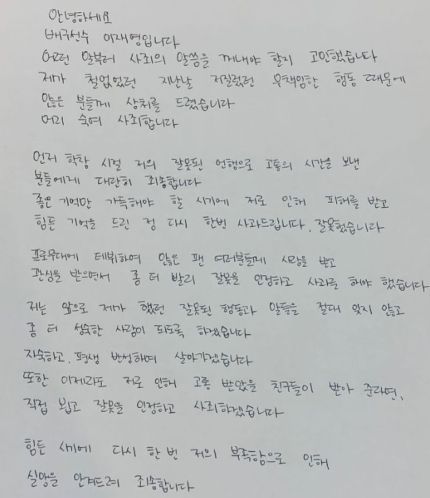 안녕하세요
배구선수 이재영입니다
어떤 말부터 사죄의 말씀을 꺼내야 할지 고민했습니다
제가 철없었던 지난날 저질렀던 무책임한 행동 때문에
많은 분들께 상처를 드렸습니다
머리 숙여 사죄합니다
먼저 학창 시절 저의 잘못된 언행으로 고통의 시간을 보낸
분들에게 대단히 죄송합니다
좋은 기억만 가득해야 할 시기에 저로 인해 피해를 받고
힘든 기억을 드린 점 다시 한번 사과드립니다, 잘못했습니다
프로무대에 데뷔하여 많은 팬 여러분들께 사랑을 받고
관심을 받으면서 좀 더 빨리 잘못을 인정하고 사과를 해야 했습니다
저는 앞으로 제가 했던 잘못된 행동과 말들을 절대 잊지 않고
좀 더 성숙한 사람이 되도록 하겠습니다
자숙하고, 평생 반성하며 살아가겠습니다
또한 이제라도 저로 인해 고통 받았을 친구들이 받아 준다면,
직접 뵙고 잘못을 인정하고 사죄하겠습니다
힘든 시기에 다시 한 번 저의 부족함으로 인해
실망을 안겨드려 죄송합니다